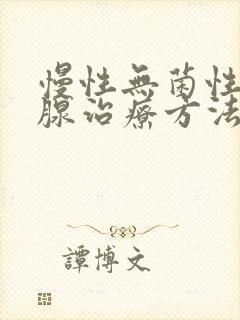 慢性無菌性
腺治療方法
譚博文